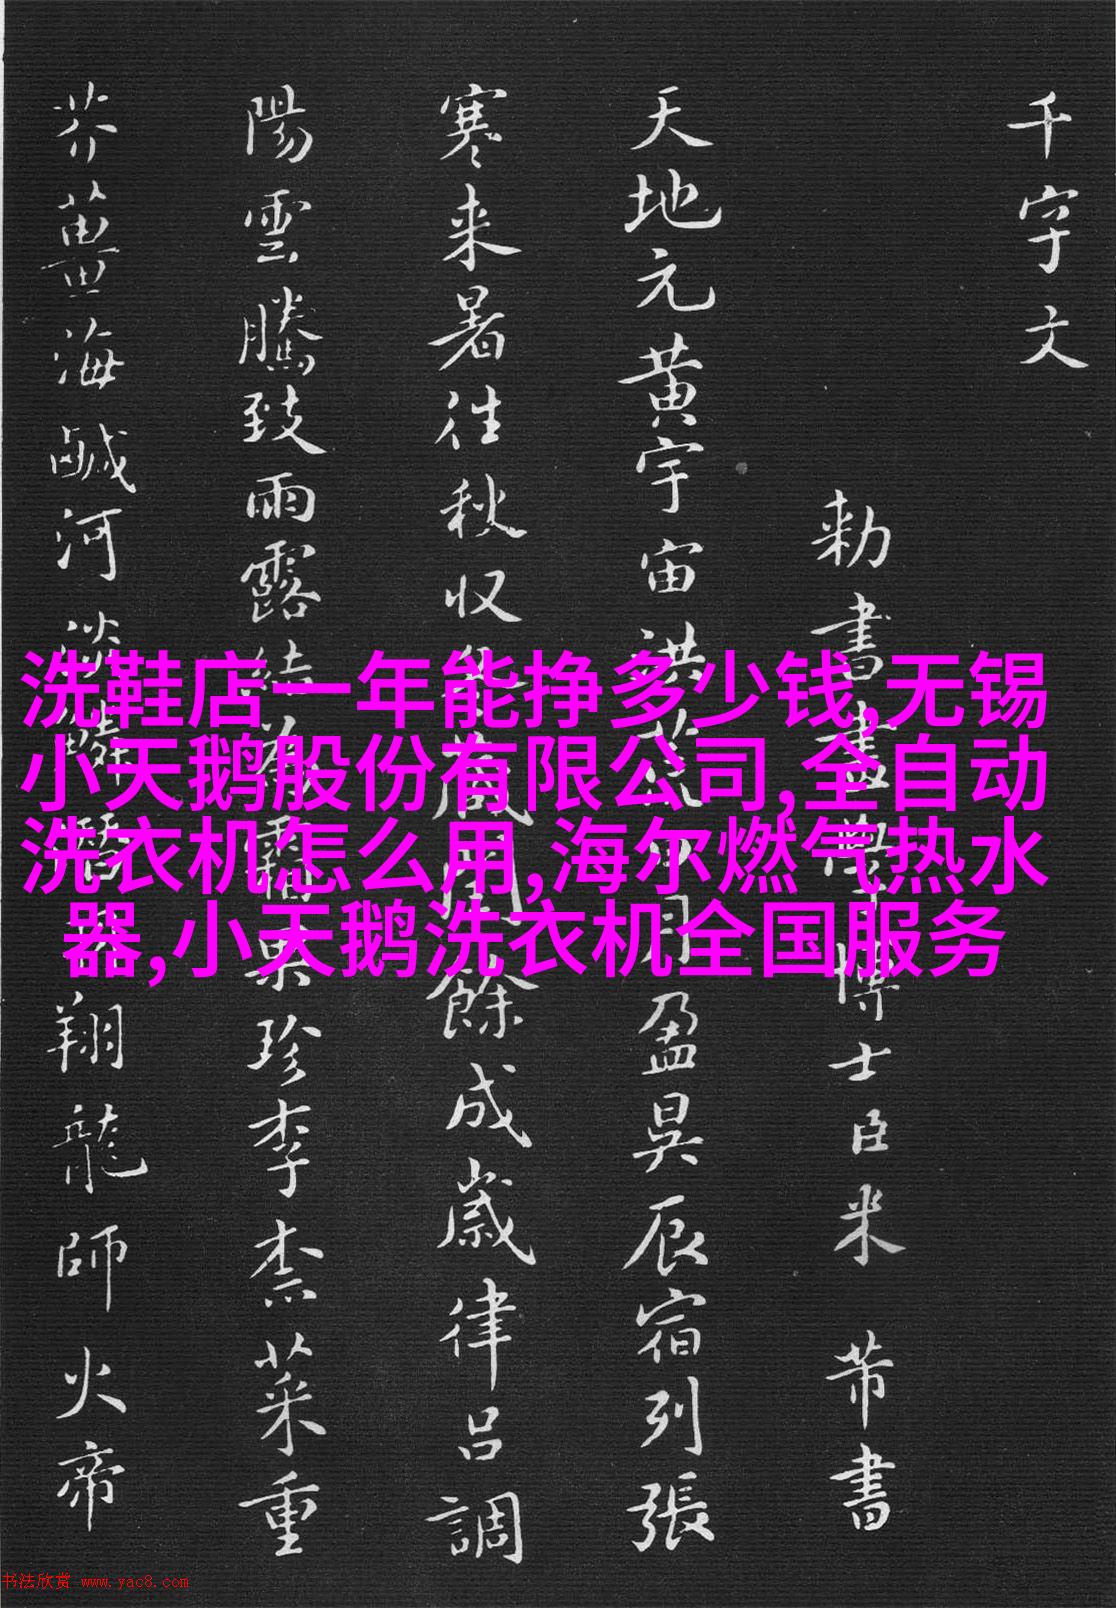 千字文
勅書畫學博士臣米 芾書
天地元黄宇宙洪荒日月盈昃辰宿列張
寒来暑往秋収冬蔵閏餘成嵗律吕調
陽雲騰致雨露結為霜果珍李柰菜重
芥薑海鹹河淡鱗潛羽翔龍師火帝
洗鞋店一年能挣多少钱,无锡
小天鹅股份有限公司,全自动
洗衣机怎么用,海尔燃气热水
器,小天鹅洗衣机全国服务
书法欣赏 www.yac8.com